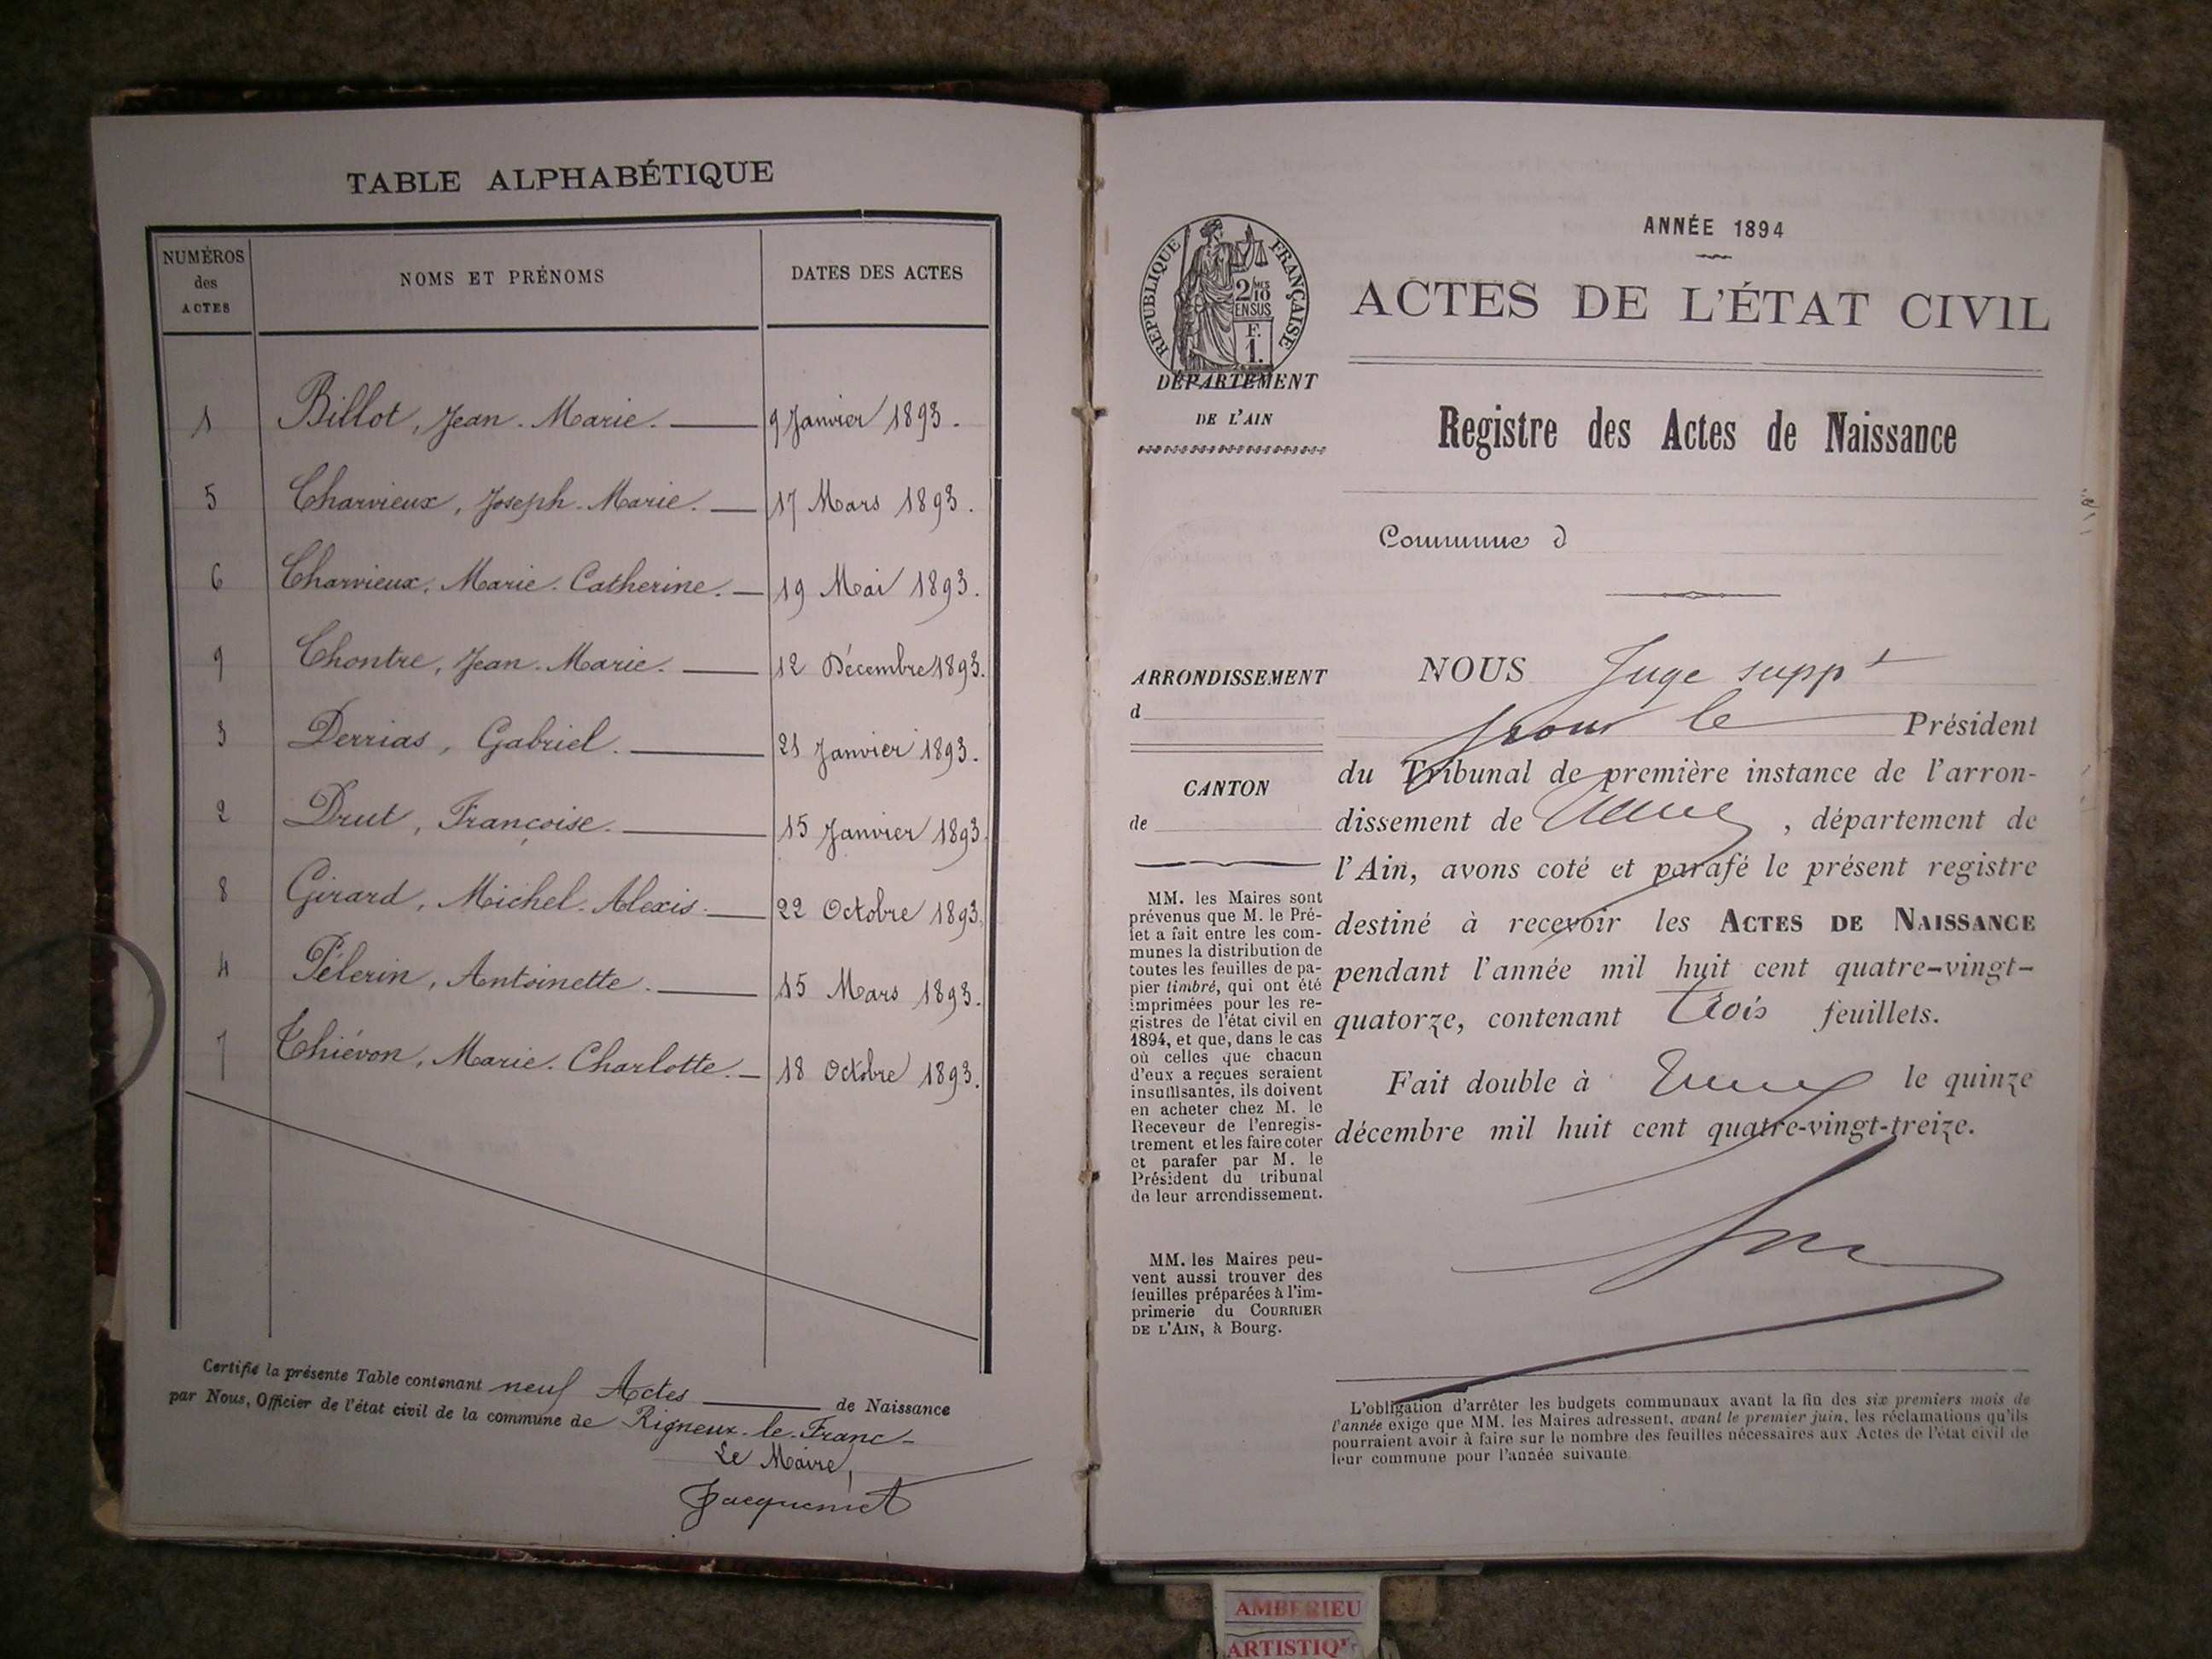 TABLE ALPHABÉTIQUE
NUMÉROS
des
ACTES
NOMS ET PRÉNOMS
DATES DES ACTES
1 Billot, Jean-Marie. 9 Janvier 1893.
5 Charvieux, Joseph-Marie. 17 Mars 1893.
6 Charvieux, Marie-Catherine. 19 Mai 1893.
9 Chontre, Jean-Marie. 12 Décembre 1893.
3 Derrias, Gabriel. 21 Janvier 1893.
2 Drut, Françoise. 15 Janvier 1893.
8 Girard, Michel-Alexis. 22 Octobre 1893.
4 Pélerin, Antoinette. 15 Mars 1893.
7 Thiévon, Marie-Charlotte. 18 Octobre 1893.
Certifié la présente Table contenant neuf Actes de Naissance
par Nous, Officier de l'état civil de la commune de Rigneux-le-Franc
Le Maire,
Jacquemet
RÉPUBLIQUE FRANÇAISE
2/10
EN SUS
F.
1.
DÉPARTEMENT
DE L'AIN
ANNÉE 1894
ACTES DE L'ÉTAT CIVIL
Registre des Actes de Naissance
Commune d
ARRONDISSEMENT
d
CANTON
de
MM. les Maires sont
prévenus que M. le Pré-
fet a fait entre les com-
munes la distribution de
toutes les feuilles de pa-
pier timbré, qui ont été
imprimées pour les re-
gistres de l'état civil en
1894, et que, dans le cas
où celles que chacun
d'eux a reçues seraient
insuffisantes, ils doivent
en acheter chez M. le
Receveur de l'enregis-
trement et les faire coter
et parafer par M. le
Président du tribunal
de leur arrondissement.
MM. les Maires peu-
vent aussi trouver des
feuilles préparées à l'im-
primerie du COURRIER
DE L'AIN, à Bourg.
NOUS Juge suppt
pour le Président
du Tribunal de première instance de l'arron-
dissement de , département de
l'Ain, avons coté et parafé le présent registre
destiné à recevoir les ACTES DE NAISSANCE
pendant l'année mil huit cent quatre-vingt-
quatorze, contenant trois feuillets.
Fait double à le quinze
décembre mil huit cent quatre-vingt-treize.
L'obligation d'arrêter les budgets communaux avant la fin des six premiers mois de
l'année exige que MM. les Maires adressent, avant le premier juin, les réclamations qu'ils
pourraient avoir à faire sur le nombre des feuilles nécessaires aux Actes de l'état civil de
leur commune pour l'année suivante.
AMBERIEU
ARTISTIQ